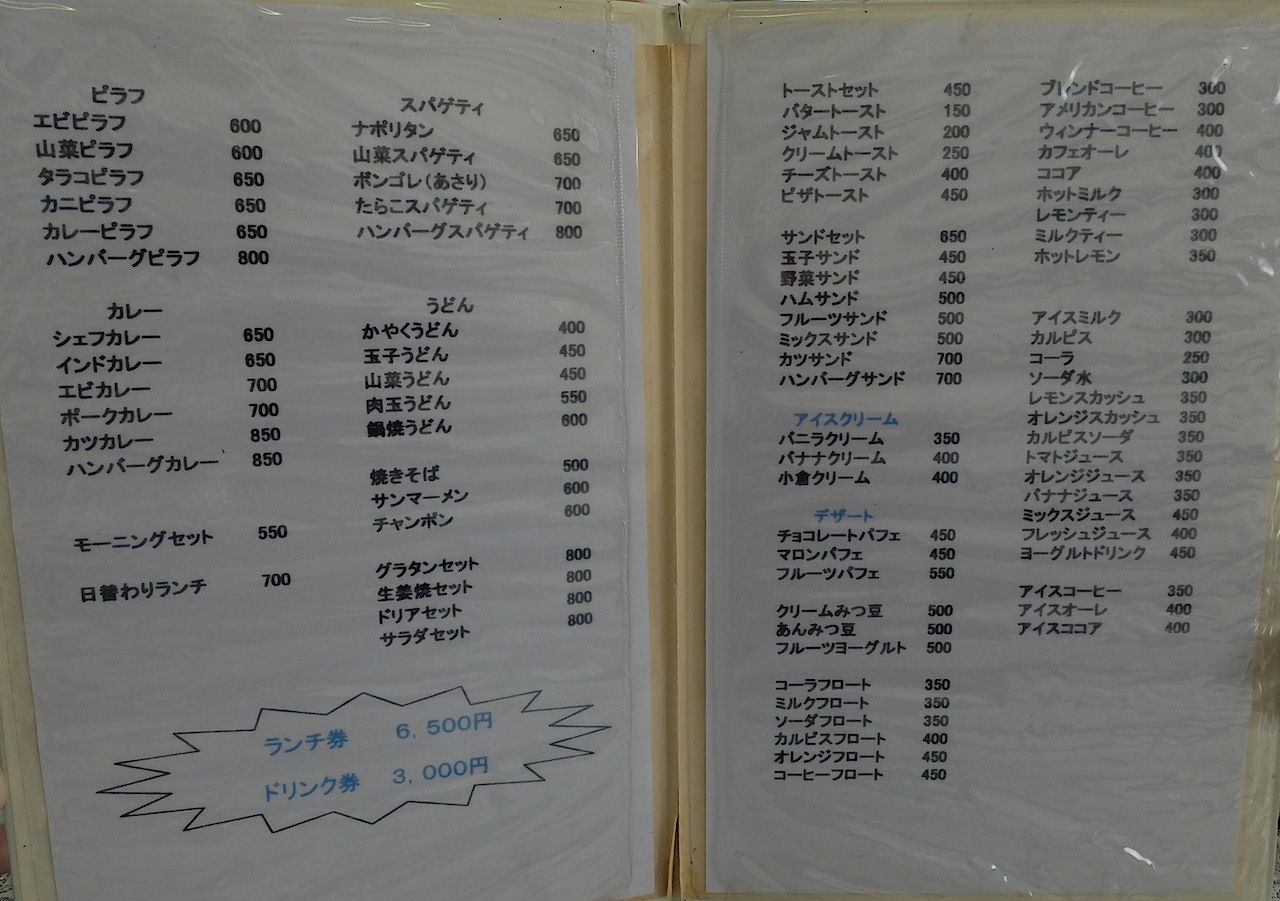 ピラフ
エビピラフ 600
山菜ピラフ 600
タラコピラフ 650
カニピラフ 650
カレーピラフ 650
ハンバーグピラフ 800
カレー
シェフカレー 650
インドカレー 650
エビカレー 700
ポークカレー 700
カツカレー 850
ハンバーグカレー 850
モーニングセット 550
日替わりランチ 700
スパゲティ
ナポリタン 650
山菜スパゲティ 650
ボンゴレ（あさり） 700
たらこスパゲティ 700
ハンバーグスパゲティ 800
うどん
かやくうどん 400
玉子うどん 450
山菜うどん 450
肉玉うどん 550
鍋焼うどん 600
焼きそば 500
サンマーメン 600
チャンポン 600
グラタンセット 800
生姜焼セット 800
ドリアセット 800
サラダセット 800
ランチ券 6，500円
ドリンク券 3，000円
トーストセット 450
バタートースト 150
ジャムトースト 200
クリームトースト 250
チーズトースト 400
ピザトースト 450
サンドセット 650
玉子サンド 450
野菜サンド 450
ハムサンド 500
フルーツサンド 500
ミックスサンド 500
カツサンド 700
ハンバーグサンド 700
アイスクリーム
バニラクリーム 350
バナナクリーム 400
小倉クリーム 400
デザート
チョコレートパフェ 450
マロンパフェ 450
フルーツパフェ 550
クリームみつ豆 500
あんみつ豆 500
フルーツヨーグルト 500
コーラフロート 350
ミルクフロート 350
ソーダフロート 350
カルピスフロート 400
オレンジフロート 450
コーヒーフロート 450
ブレンドコーヒー 300
アメリカンコーヒー 300
ウィンナーコーヒー 400
カフェオーレ 400
ココア 400
ホットミルク 300
レモンティー 300
ミルクティー 300
ホットレモン 350
アイスミルク 300
カルピス 300
コーラ 250
ソーダ水 300
レモンスカッシュ 350
オレンジスカッシュ 350
カルピスソーダ 350
トマトジュース 350
オレンジジュース 350
バナナジュース 350
ミックスジュース 450
フレッシュジュース 400
ヨーグルトドリンク 450
アイスコーヒー 350
アイスオーレ 400
アイスココア 400